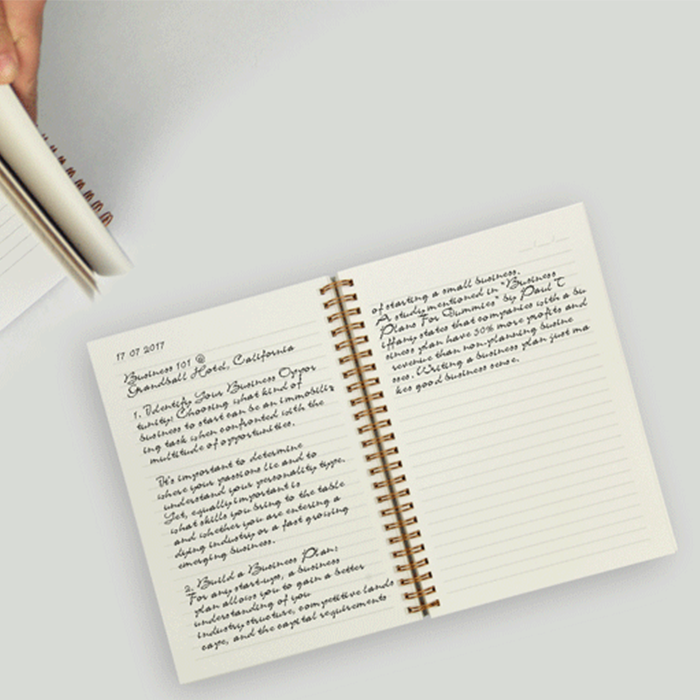 17 07 2017
Business 101 @
Grandball Hotel, California
1. Identify Your Business Oppor
tunity: Choosing what kind of
business to start can be an immobiliz
ing task when confronted with the
multitude of opportunities.
It's important to determine
where your passions lie and to
understand your personality type.
Yet, equally important is
what skills you bring to the table
and whether you are entering a
dying industry or a fast growing
emerging business.
2. Build a Business Plan:
For any start-ups, a business
plan allows you to gain a better
understanding of you
industry structure, competitive lands
cape, and the capital requirements
of starting a small business.
A study mentioned in "Business
Plans For Dummies" by Paul T
iffany states that companies with a bu
siness plan have 50% more profits and
revenue than non-planning busine
sses. Writing a business plan just ma
kes good business sense.